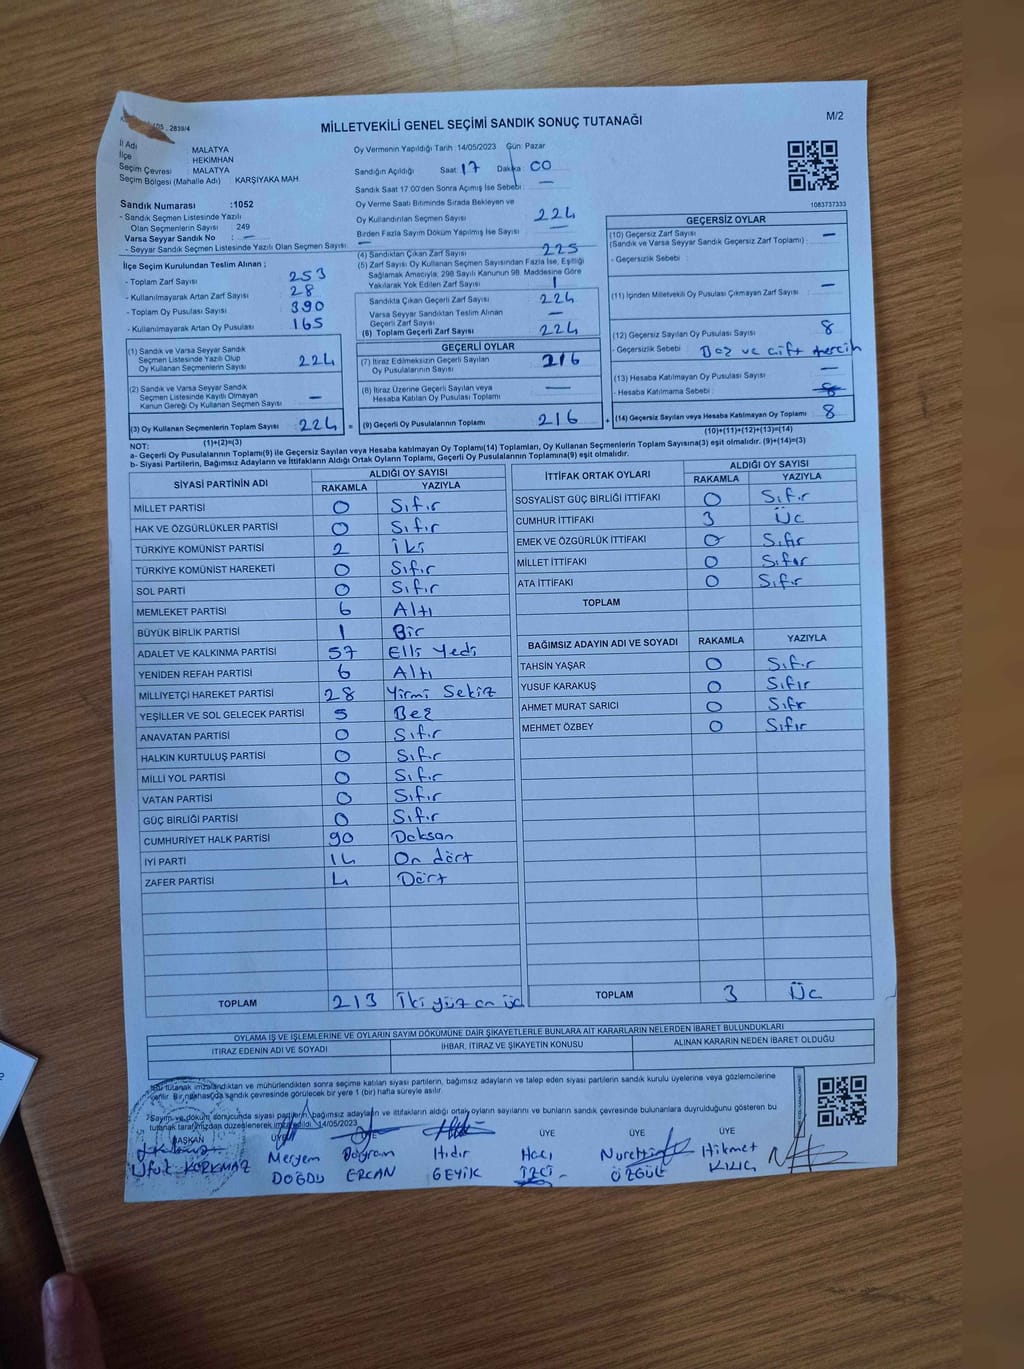 2839/4
MİLLETVEKİLİ GENEL SEÇİMİ SANDIK SONUÇ TUTANAĞI
M/2
İl Adı : MALATYA
İlçe : HEKİMHAN
Seçim Çevresi : MALATYA
Seçim Bölgesi (Mahalle Adı) : KARŞIYAKA MAH.
Sandık Numarası :1052
- Sandık Seçmen Listesinde Yazılı
Olan Seçmenlerin Sayısı 249
Varsa Seyyar Sandık No : —
- Seyyar Sandık Seçmen Listesinde Yazılı Olan Seçmen Sayısı: —
İlçe Seçim Kurulundan Teslim Alınan ;
- Toplam Zarf Sayısı : 253
- Kullanılmayarak Artan Zarf Sayısı : 28
- Toplam Oy Pusulası Sayısı : 390
- Kullanılmayarak Artan Oy Pusulası : 165
(1) Sandık ve Varsa Seyyar Sandık
Seçmen Listesinde Yazılı Olup
Oy Kullanan Seçmenlerin Sayısı : 224
(2) Sandık ve Varsa Seyyar Sandık
Seçmen Listesinde Kayıtlı Olmayan
Kanun Gereği Oy Kullanan Seçmen Sayısı : —
(3) Oy Kullanan Seçmenlerin Toplam Sayısı : 224 =
(1)+(2)=(3)
Oy Vermenin Yapıldığı Tarih :14/05/2023 Gün: Pazar
Sandığın Açıldığı Saat: 17 Dakika : 00
Sandık Saat 17.00'den Sonra Açımış İse Sebebi : —
Oy Verme Saati Bitiminde Sırada Bekleyen ve
Oy Kullandırılan Seçmen Sayısı : 224
Birden Fazla Sayım Döküm Yapılmış İse Sayısı : —
(4) Sandıktan Çıkan Zarf Sayısı : 225
(5) Zarf Sayısı Oy Kullanan Seçmen Sayısından Fazla İse, Eşitliği
Sağlamak Amacıyla; 298 Sayılı Kanunun 98. Maddesine Göre
Yakılarak Yok Edilen Zarf Sayısı : 1
Sandıkta Çıkan Geçerli Zarf Sayısı : 224
Varsa Seyyar Sandıktan Teslim Alınan
Geçerli Zarf Sayısı : —
(6) Toplam Geçerli Zarf Sayısı : 224
GEÇERLİ OYLAR
(7) İtiraz Edilmeksizin Geçerli Sayılan
Oy Pusulasının Sayısı : 216
(8) İtiraz Üzerine Geçerli Sayılan veya
Hesaba Katılan Oy Pusulası Toplamı : —
(9) Geçerli Oy Pusulalarının Toplamı : 216 +
1083737333
GEÇERSİZ OYLAR
(10) Geçersiz Zarf Sayısı
(Sandık ve Varsa Seyyar Sandık Geçersiz Zarf Toplamı) : —
- Geçersizlik Sebebi :
(11) İçinden Milletvekili Oy Pusulası Çıkmayan Zarf Sayısı : —
(12) Geçersiz Sayılan Oy Pusulası Sayısı : 8
- Geçersizlik Sebebi : Boz ve çift tercih
(13) Hesaba Katılmayan Oy Pusulası Sayısı : —
- Hesaba Katılmama Sebebi :
(14) Geçersiz Sayılan veya Hesaba Katılmayan Oy Toplamı : 8
(10)+(11)+(12)+(13)=(14)
NOT:
a- Geçerli Oy Pusulalarının Toplamı(9) ile Geçersiz Sayılan veya Hesaba Katılmayan Oy Toplamı(14) Toplamları, Oy Kullanan Seçmenlerin Toplam Sayısına(3) eşit olmalıdır. (9)+(14)=(3)
b- Siyasi Partilerin, Bağımsız Adayların ve İttifakların Aldığı Ortak Oyların Toplamı, Geçerli Oy Pusulalarının Toplamına(9) eşit olmalıdır.
SİYASİ PARTİNİN ADI ALDIĞI OY SAYISI
RAKAMLA YAZIYLA
MİLLET PARTİSİ 0 Sıfır
HAK VE ÖZGÜRLÜKLER PARTİSİ 0 Sıfır
TÜRKİYE KOMÜNİST PARTİSİ 2 İki
TÜRKİYE KOMÜNİST HAREKETİ 0 Sıfır
SOL PARTİ 0 Sıfır
MEMLEKET PARTİSİ 6 Altı
BÜYÜK BİRLİK PARTİSİ 1 Bir
ADALET VE KALKINMA PARTİSİ 57 Elli Yedi
YENİDEN REFAH PARTİSİ 6 Altı
MİLLİYETÇİ HAREKET PARTİSİ 28 Yirmi Sekiz
YEŞİLLER VE SOL GELECEK PARTİSİ 5 Beş
ANAVATAN PARTİSİ 0 Sıfır
HALKIN KURTULUŞ PARTİSİ 0 Sıfır
MİLLİ YOL PARTİSİ 0 Sıfır
VATAN PARTİSİ 0 Sıfır
GÜÇ BİRLİĞİ PARTİSİ 0 Sıfır
CUMHURİYET HALK PARTİSİ 90 Doksan
İYİ PARTİ 14 On dört
ZAFER PARTİSİ 4 Dört
TOPLAM 213 İki yüz on üç
İTTİFAK ORTAK OYLARI ALDIĞI OY SAYISI
RAKAMLA YAZIYLA
SOSYALİST GÜÇ BİRLİĞİ İTTİFAKI 0 Sıfır
CUMHUR İTTİFAKI 3 Üç
EMEK VE ÖZGÜRLÜK İTTİFAKI 0 Sıfır
MİLLET İTTİFAKI 0 Sıfır
ATA İTTİFAKI 0 Sıfır
TOPLAM
BAĞIMSIZ ADAYIN ADI VE SOYADI RAKAMLA YAZIYLA
TAHSİN YAŞAR 0 Sıfır
YUSUF KARAKUŞ 0 Sıfır
AHMET MURAT SARICI 0 Sıfır
MEHMET ÖZBEY 0 Sıfır
TOPLAM 3 Üç
OYLAMA İŞ VE İŞLEMLERİNE VE OYLARIN SAYIM DÖKÜMÜNE DAİR ŞİKAYETLERLE BUNLARA AİT KARARLARIN NELERDEN İBARET BULUNDUKLARI
İTİRAZ EDENİN ADI VE SOYADI İHBAR, İTİRAZ VE ŞİKAYETİN KONUSU ALINAN KARARIN NEDEN İBARET OLDUĞU
Bu tutanak imzalandıktan ve mühürlendikten sonra seçime katılan siyasi partilerin, bağımsız adayların ve talep eden siyasi partilerin sandık kurulu üyelerine veya gözlemcilerine
verilir. Bir nüshası da sandık çevresinde görülecek bir yere 1 (bir) hafta süreyle asılır.
Sayım ve döküm sonucunda siyasi partilerin, bağımsız adayların ve ittifakların aldığı ortak oyların sayılarını ve bunların sandık çevresinde bulunanlara duyrulduğunu gösteren bu
tutanak tarafımızdan düzenlenerek imza edildi. 14/05/2023
BAŞKAN ÜYE ÜYE ÜYE ÜYE ÜYE
Ufuk KORKMAZ
Meryem DOĞDU
Doğram ERCAN
Hıdır GEYİK
Hacı İZCİ
Nurettin ÖZGÜL
Hikmet KILIÇ